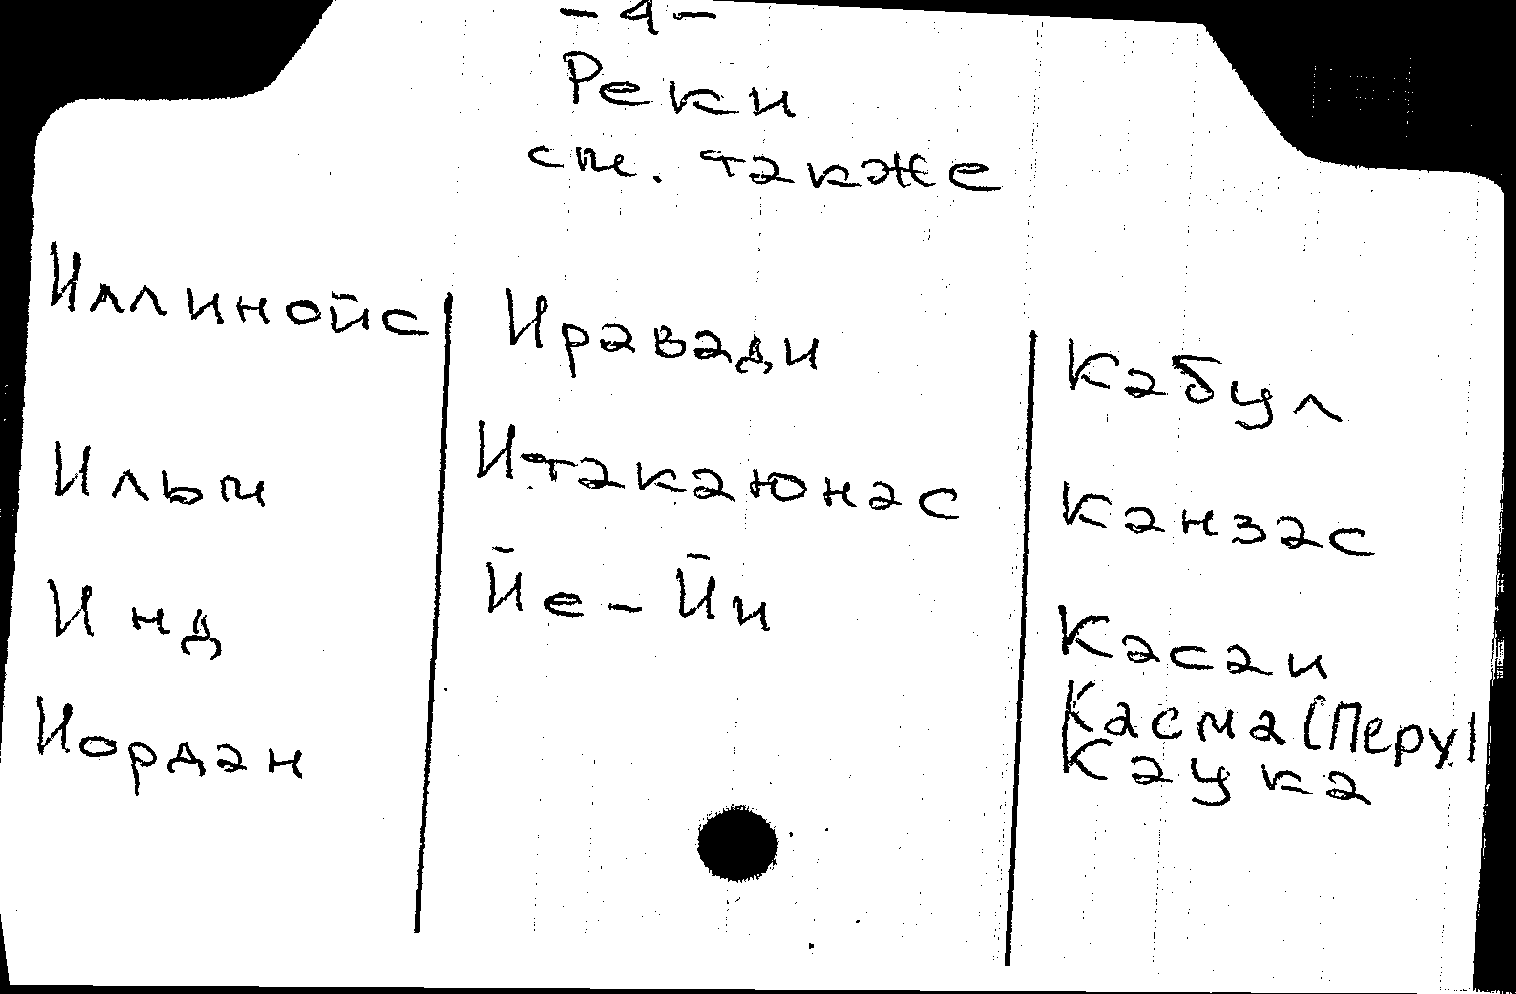 - 4 -
Реки
см. также
Иллинойс
Ильм
Инд
Иордан
Иравади
Итакаюнас
Йе-Йи
Кабул
Канзас
Касаи
Касма (Перу)
Каука